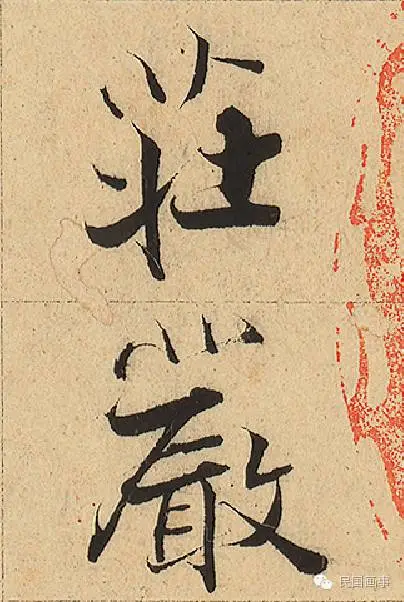 莊嚴
民国画事